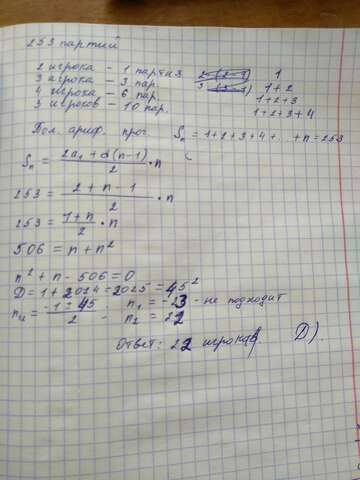 253 партий
2 игрока - 1 партия 1
3 игрока - 3 пар. 1+2
4 игрока - 6 пар. 1+2+3
5 игроков - 10 пар. 1+2+3+4
ариф. прог Sₙ = 1+2+3+4+ .. +n = 253
Sₙ = (2a₁ + d(n-1))/2 · n
253 = (2 + n - 1)/2 · n
253 = (1+n)/2 · n
506 = n + n²
n² + n - 506 = 0
D = 1 + 2024 = 2025 = 45²
n₁,₂ = (-1 ± 45)/2 n₁ = -23 - не подходит
n₂ = 22
Ответ: 22 игрока D)